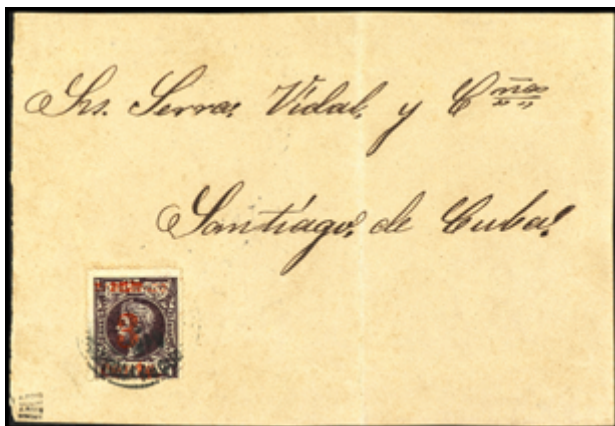 Srs. Serra, Vidal, y Cñas
Santiago, de Cuba,